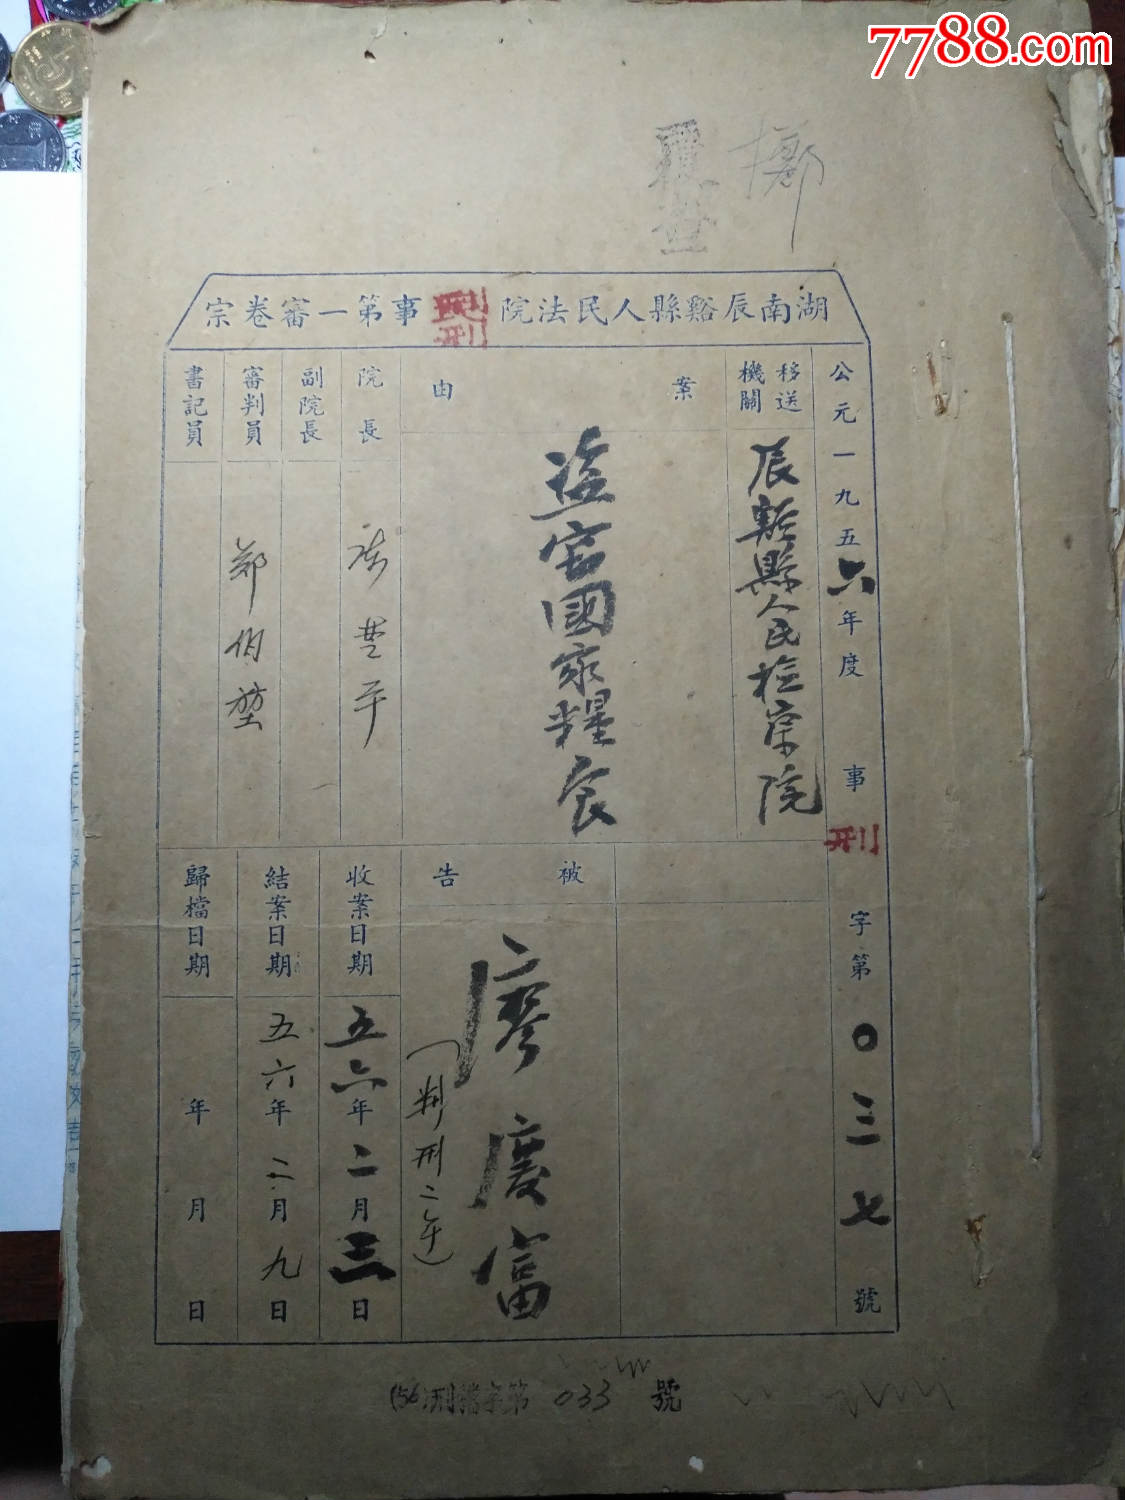 7788.com
覆查
湖南辰谿縣人民法院刑事第一審卷宗
公元一九五六年度刑事字第〇三七號
移送機關
辰谿縣人民檢察院
案由
盗窃國家糧食
院長
副院長
審判員
郑伯
書記員
被告
廖慶富
(判刑二年)
收案日期
五六年二月三日
結案日期
五六年二月九日
歸檔日期
年月日
(56)刑檔字第033號